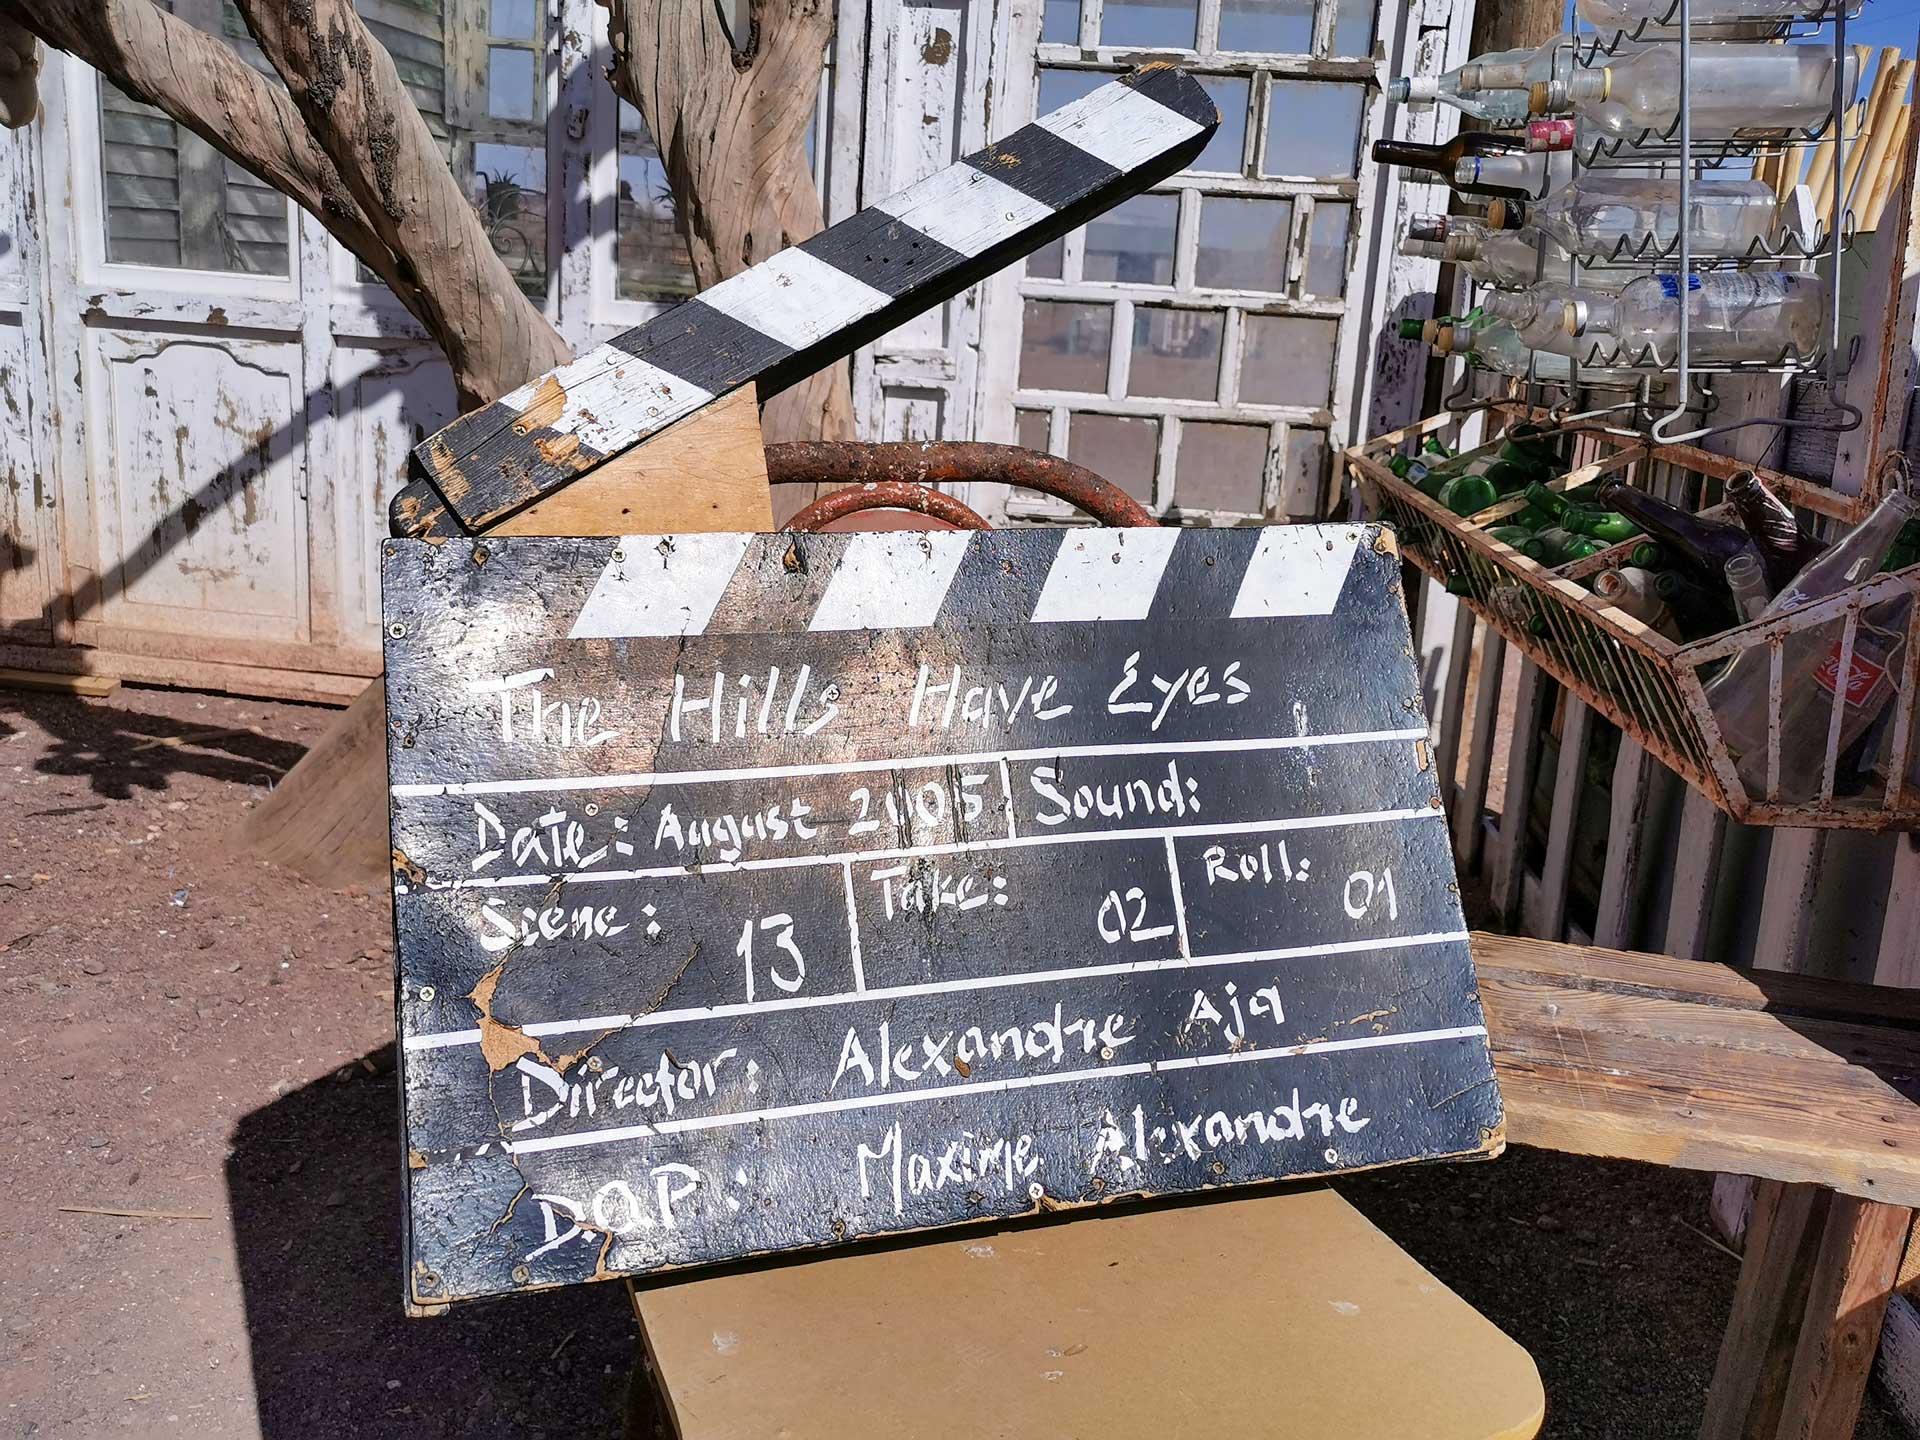 The Hills Have Eyes
Date: August 2005 Sound:
Scene: 13 Take: 02 Roll: 01
Director: Alexandre Aja
D.O.P: Maxime Alexandre